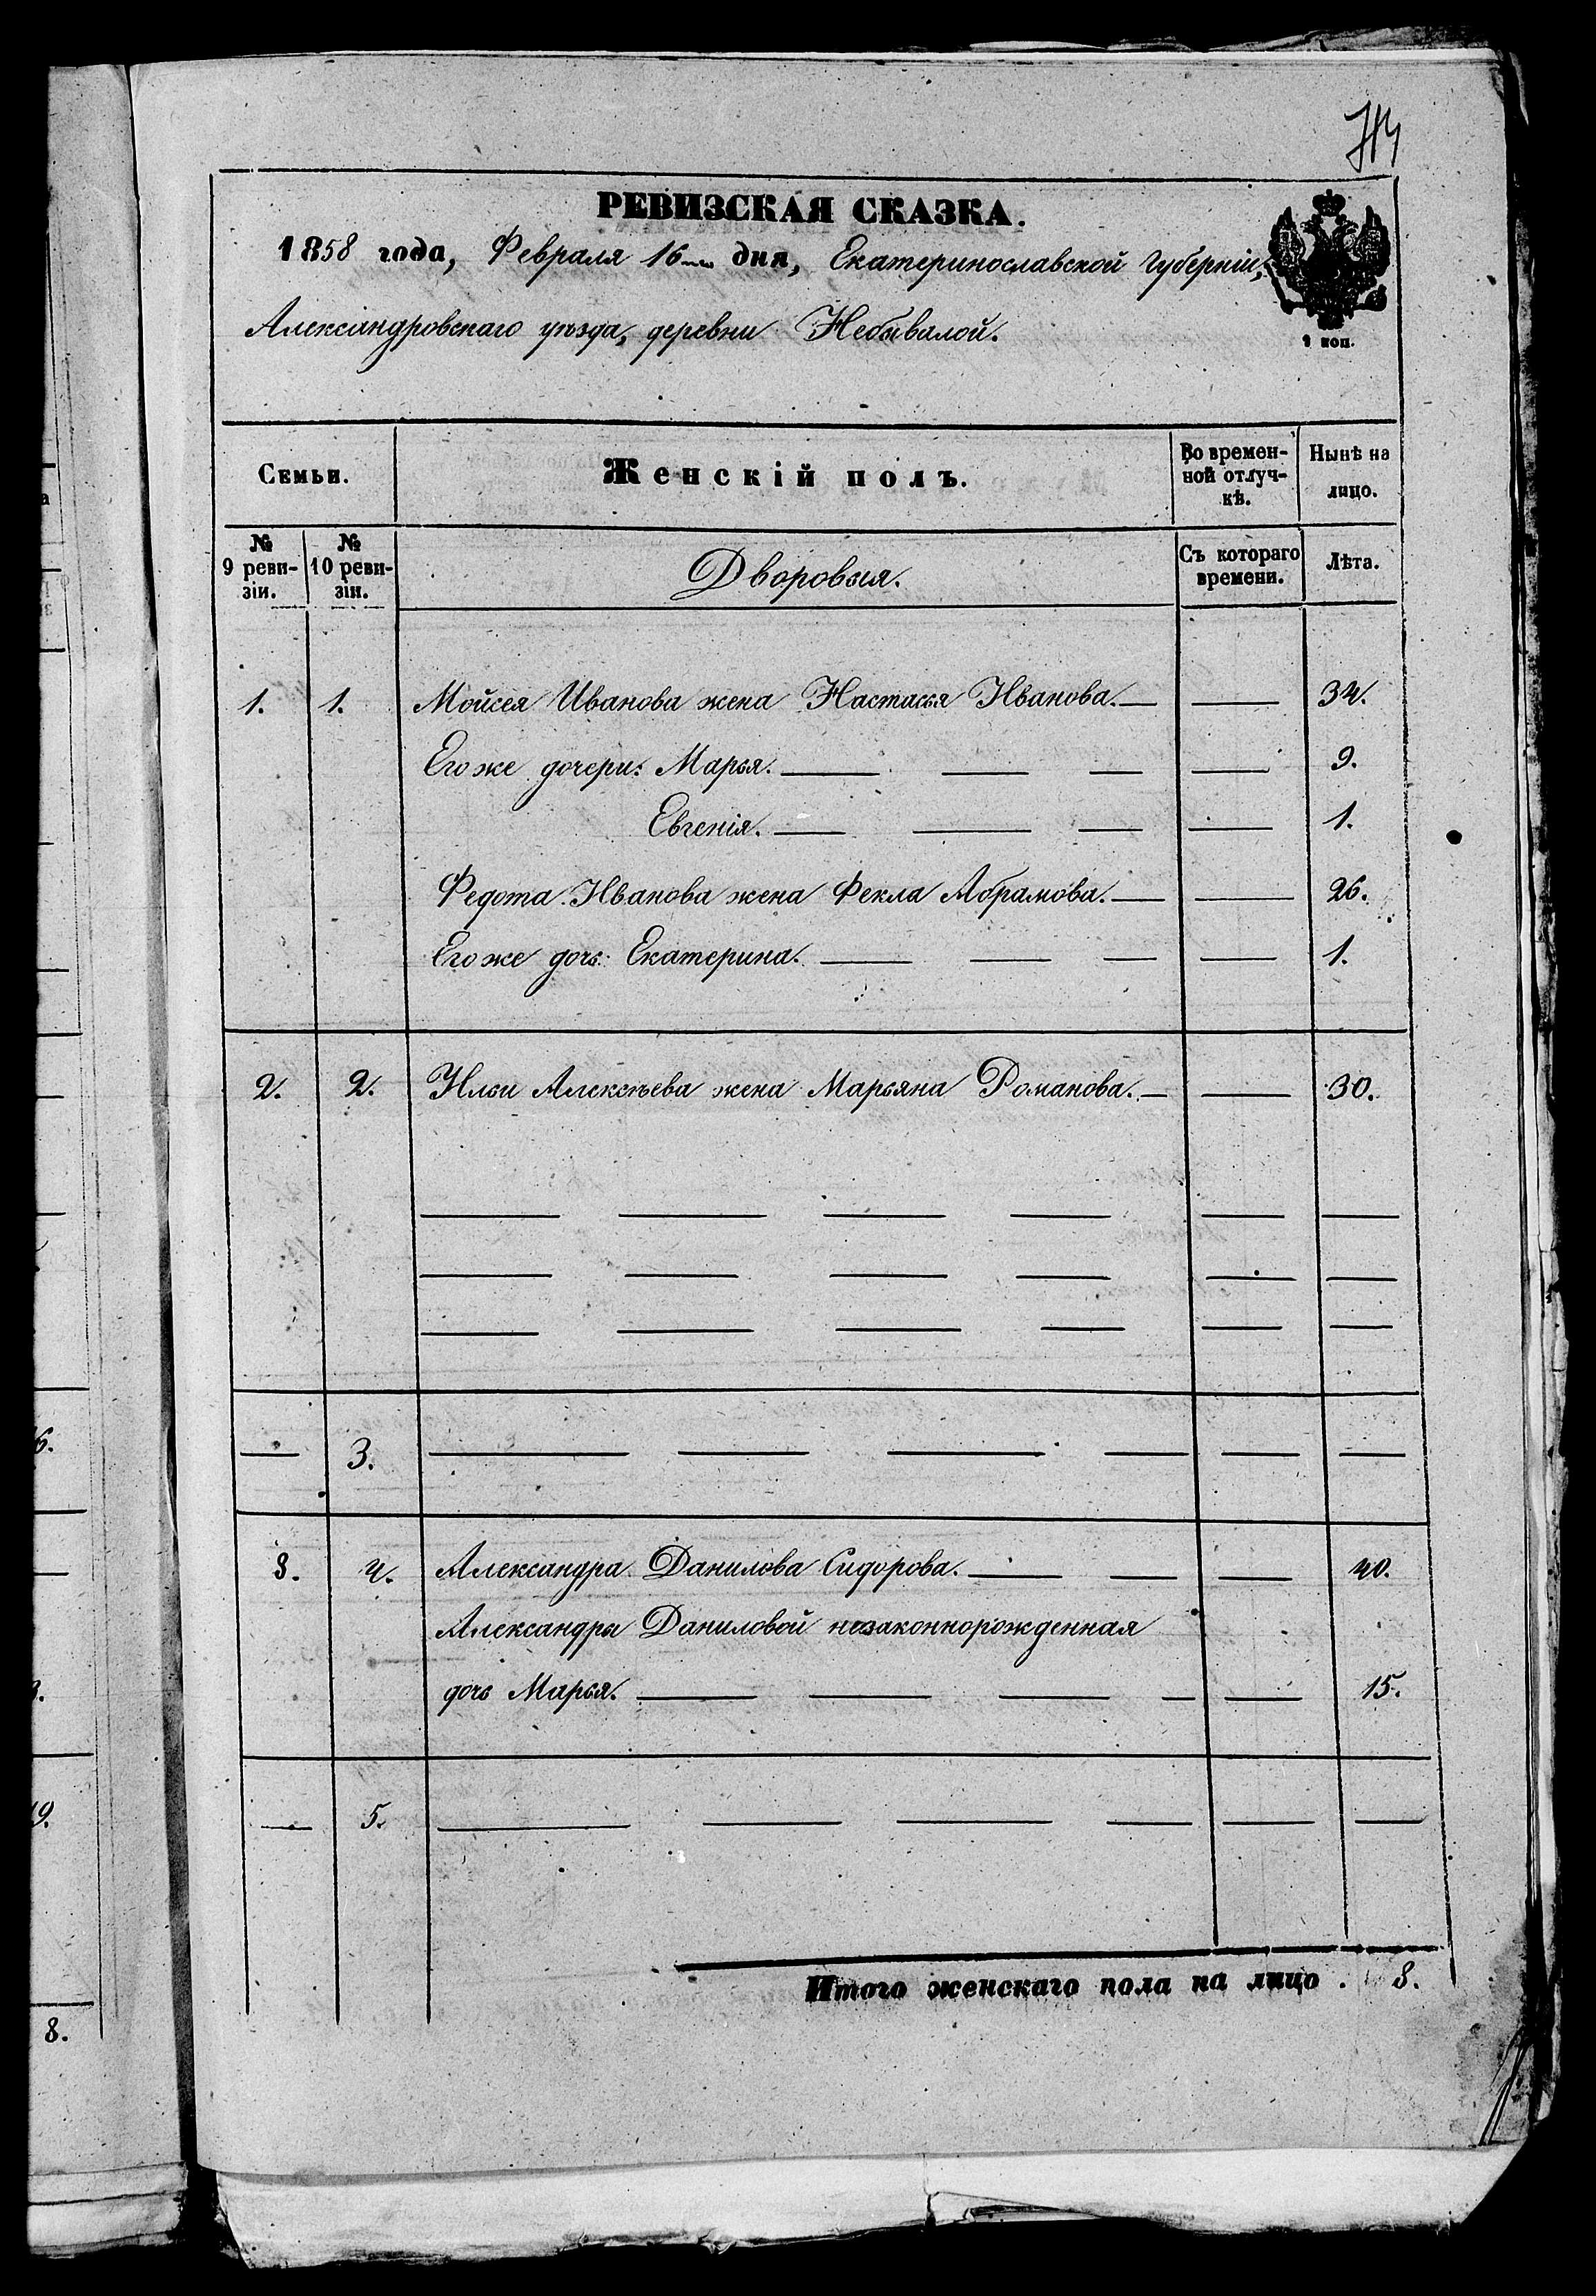 РЕВИЗСКАЯ СКАЗКА.
1858 года, Февраля 16го дня, Екатеринославской Губерніи,
Александровскаго уѣзда, деревни Небывалой.
1 коп.
Семьи. Женскій полъ. Во времен-ной отлуч-кѣ. Нынѣ на лицо.
№ 9 реви-зіи. № 10 реви-зіи. Дворовыя. Съ котораго времени. Лѣта.
1. 1. Мойсея Иванова жена Настасья Иванова. 34.
Его же дочери: Марья. 9.
Евгенія. 1.
Федота Иванова жена Фекла Абрамова. 26.
Его же дочь: Екатерина. 1.
2. 2. Ильи Алексѣева жена Марьяна Романова. 30.
3.
3. 4. Александра Данилова Сидорова. 40.
Александры Даниловой незаконнорожденная
дочь Марья. 15.
5.
Итого женскаго пола на лицо . 8.
9.
8.